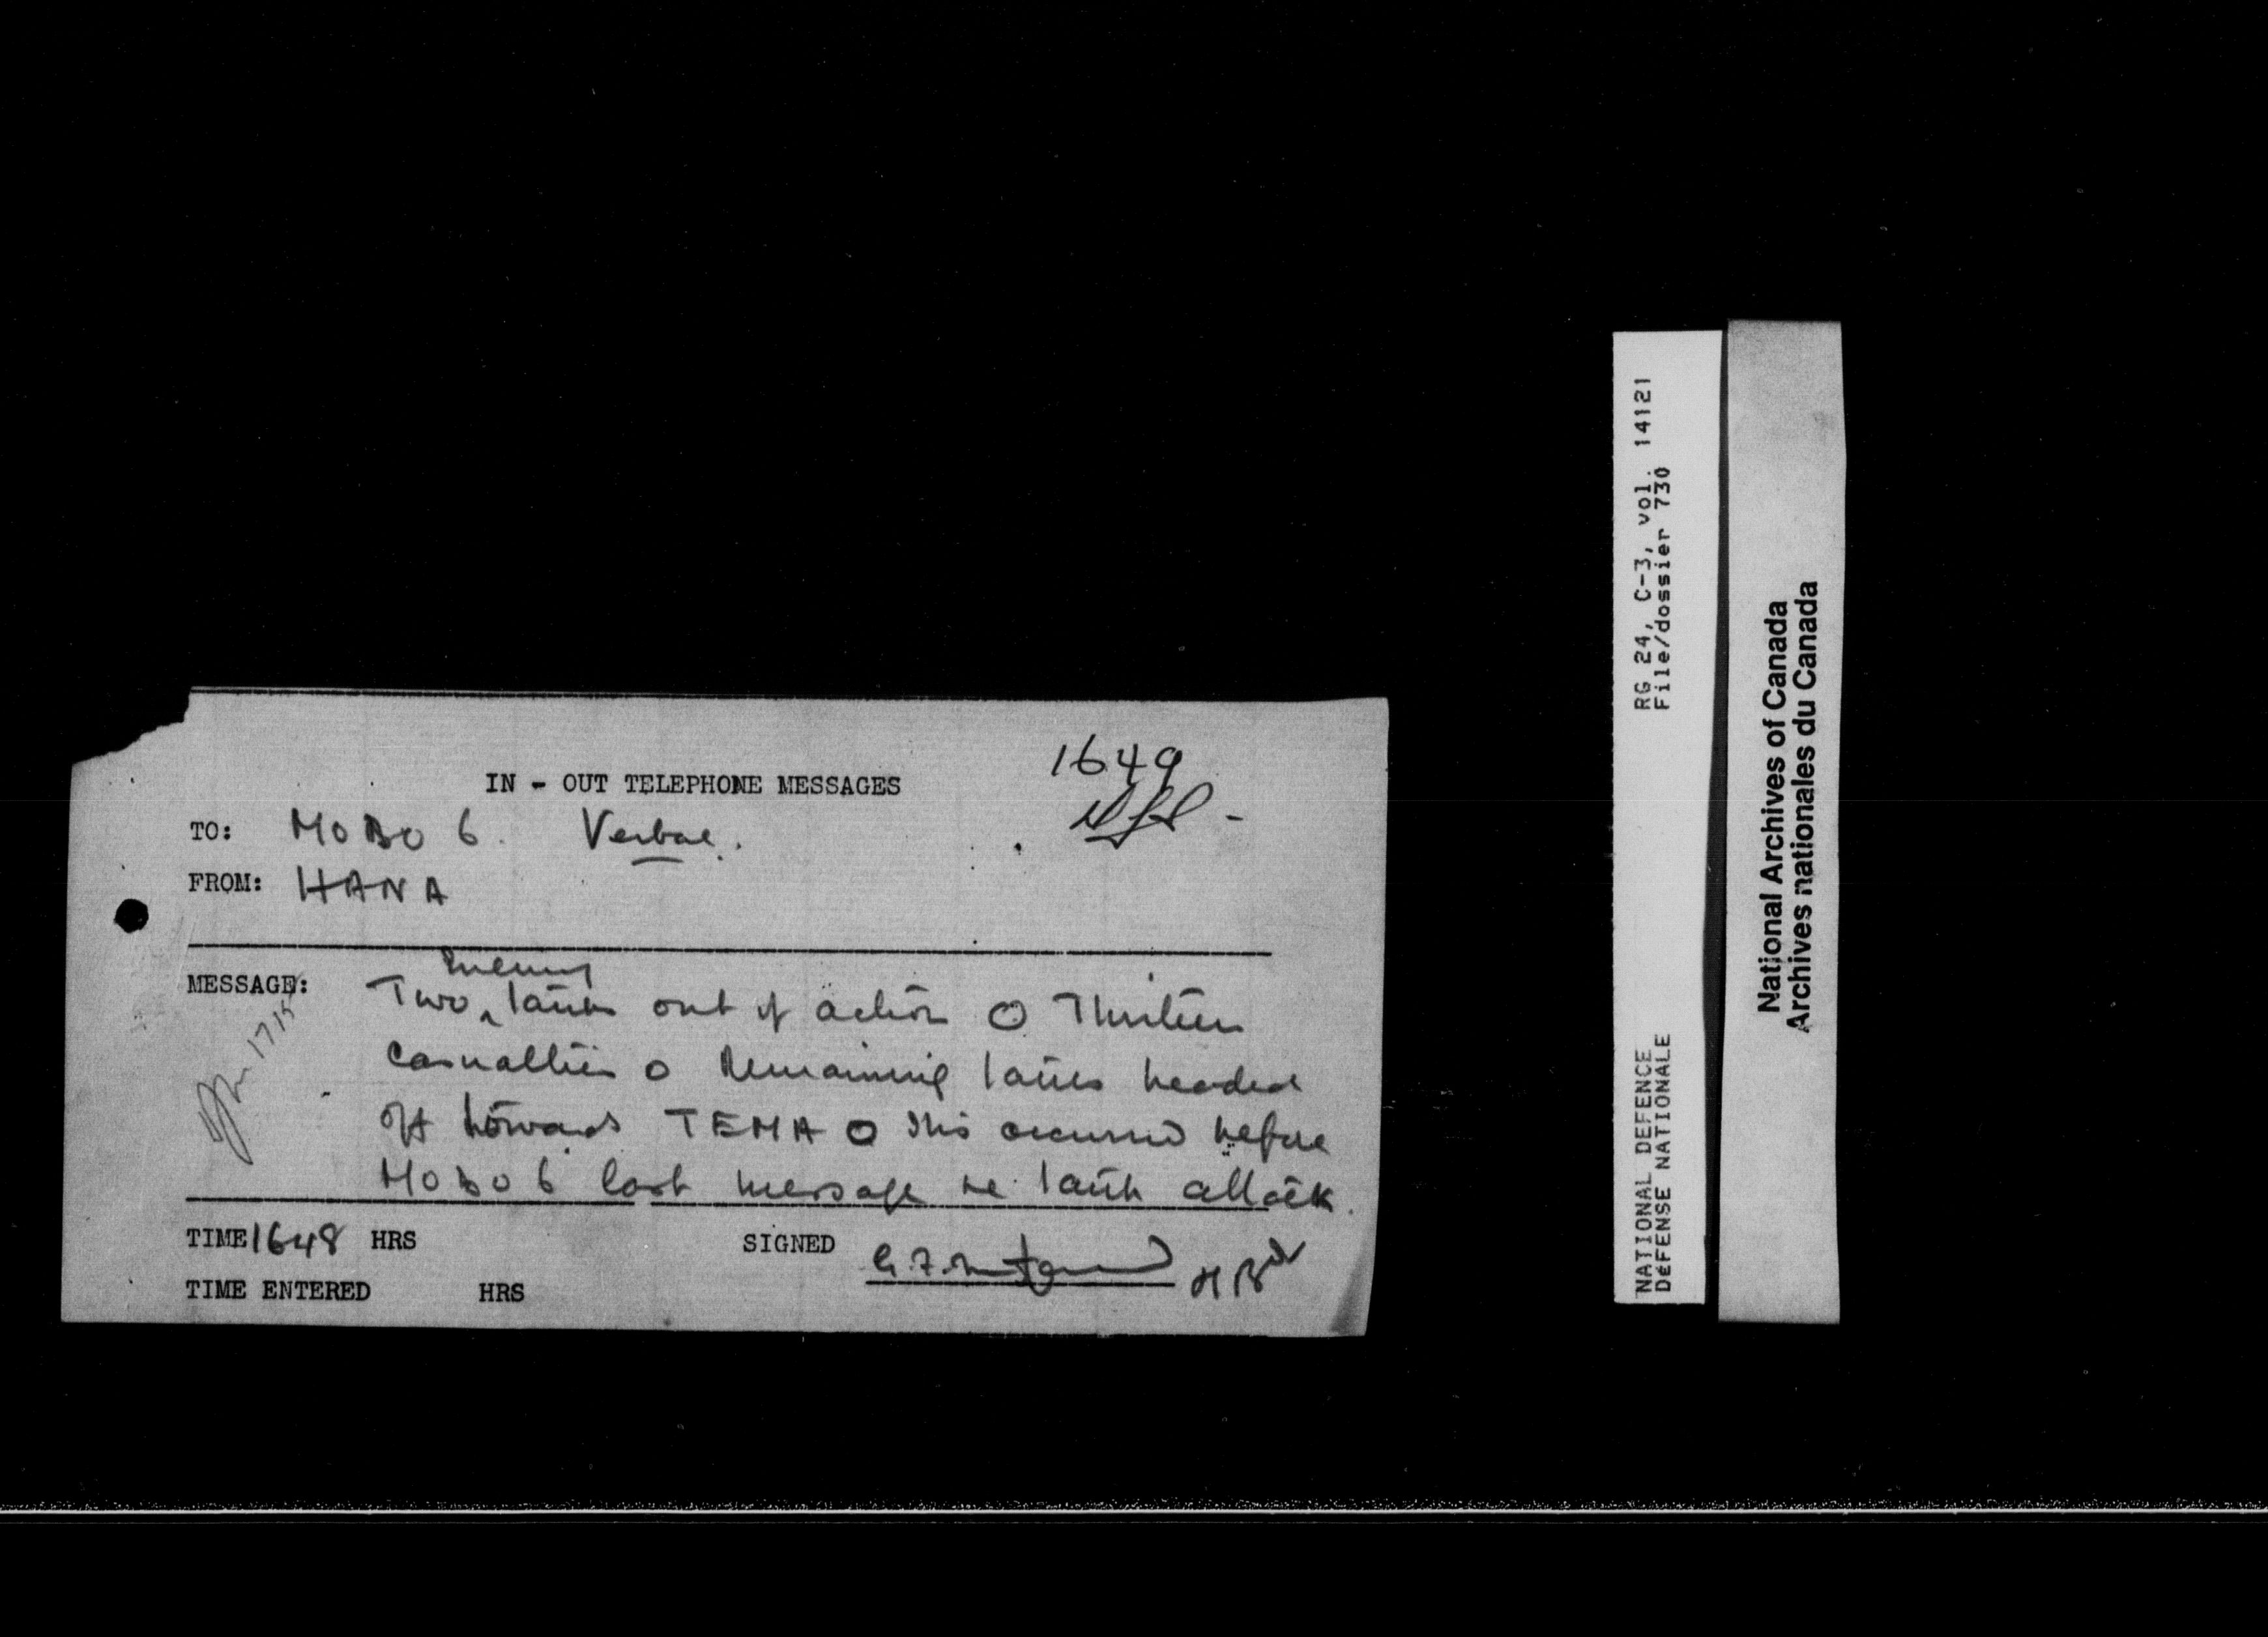 1649
IN - OUT TELEPHONE MESSAGES
TO: MOBO 6. Verbal.
FROM: HANA
MESSAGE: Two enemy tanks out of action O Thirteen
casualties O Remaining tanks headed
off towards TEMA O This occurred before
MOBO 6 last message re tank attack.
1715
TIME 1648 HRS SIGNED
TIME ENTERED HRS
RG 24, C-3, vol. 14121
File/dossier 730
NATIONAL DEFENCE
DéFENSE NATIONALE
National Archives of Canada
Archives nationales du Canada